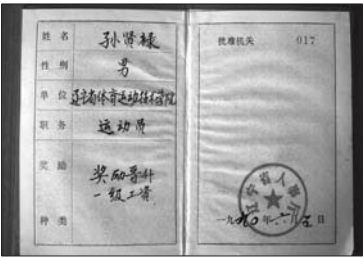 姓 名 孙贤禄
性 别 男
单 位 辽宁省体育运动技术学院
职 务 运动员
奖 励 奖励晋升
一级工资
种 类
批准机关 017
辽宁省人事厅
一九九0年六月五日